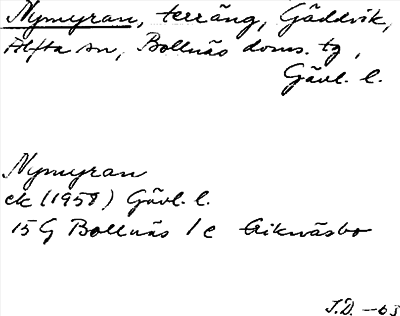 Nymyran, terräng, Gäddvik,
Alfta sn, Bollnäs doms. tg,
Gävl. l.
Nymyran
ek (1958) Gävl. l.
15 G Bollnäs 1 c Eriknäsbo
J.D. -63